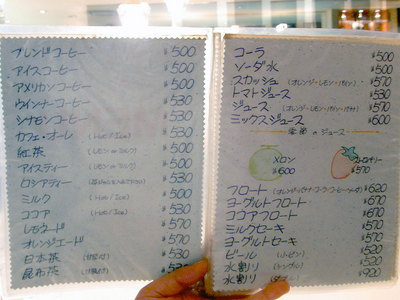 ブレンドコーヒー ¥500
アイスコーヒー ¥500
アメリカンコーヒー ¥500
ウインナーコーヒー ¥530
シナモンコーヒー ¥530
カフェ・オーレ (Hot/Ice) ¥530
紅茶 (レモン or ミルク) ¥500
アイスティー (レモン or ミルク) ¥500
ロシアティー ¥530
ミルク (Hot/Ice) ¥500
ココア (Hot/Ice) ¥530
レモネード ¥570
オレンジエード ¥570
日本茶 ¥530
昆布茶
コーラ ¥500
ソーダ水 ¥500
スカッシュ (オレンジ・レモン・パイン) ¥570
トマトジュース ¥530
ジュース (オレンジ・レモン・パイン・バナナ) ¥570
ミックスジュース ¥600
季節のジュース
メロン ¥600
ストロベリー ¥570
フロート ¥620
ヨーグルトフロート ¥670
ココアフロート ¥670
ミルクセーキ ¥570
ヨーグルトセーキ ¥570
ビール (小ビン) ¥520
水割り (シングル) ¥520
水割り ¥920